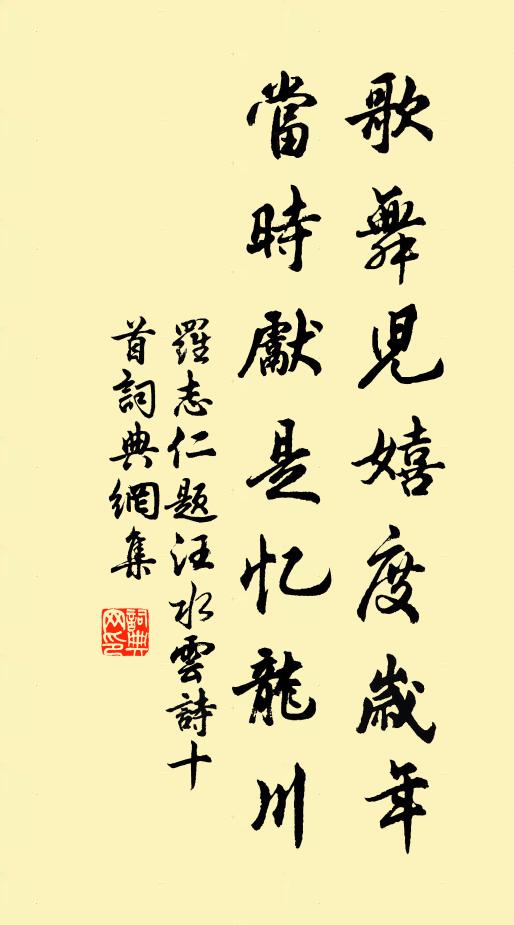 歌舞兒嬉度歲年
當時獻是忆龍川
羅志仁題汪水雲詩十
首詞典網集
詞典
网印